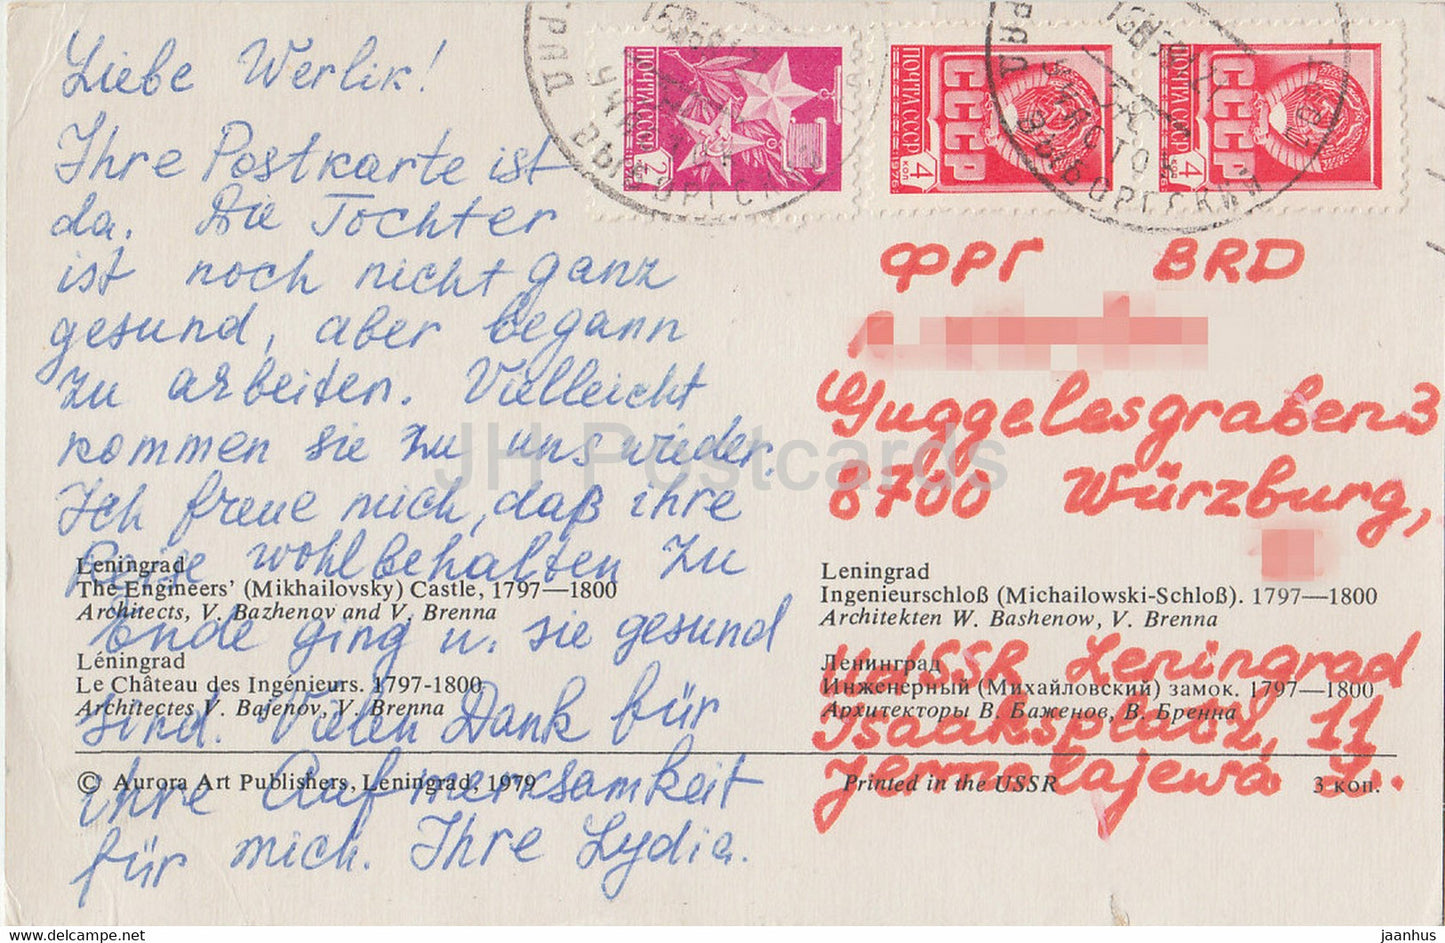 Liebe Werlik!
Ihre Postkarte ist
da. Die Tochter
ist noch nicht ganz
gesund, aber begann
zu arbeiten. Vielleicht
kommen sie zu uns wieder.
Ich freue mich, daß ihre
Reise wohlbehalten zu
Ende ging u. sie gesund
sind. Vielen Dank für
ihre Aufmerksamkeit
für mich. Ihre Lydia.
ПОЧТА СССР
2 коп
1976
ПОЧТА СССР
СССР
4 коп
1976
ПОЧТА СССР
СССР
4 коп
1976
УЧАСТОК
ВЫБОРГСКИЙ
ФРГ BRD
Guggelesgraben 3
8700 Würzburg,
UdSSR Leningrad
Isaaksplatz, 11
Jermolajewa L.
Leningrad
The Engineers' (Mikhailovsky) Castle, 1797—1800
Architects, V. Bazhenov and V. Brenna
Léningrad
Le Château des Ingénieurs. 1797-1800
Architectes V. Bajenov, V. Brenna
Leningrad
Ingenieurschloß (Michailowski-Schloß). 1797—1800
Architekten W. Bashenow, V. Brenna
Ленинград
Инженерный (Михайловский) замок. 1797—1800
Архитекторы В. Баженов, В. Бренна
© Aurora Art Publishers, Leningrad, 1979
Printed in the USSR
3 коп.
JH Postcards
www.hippostcard.com
jaanhus